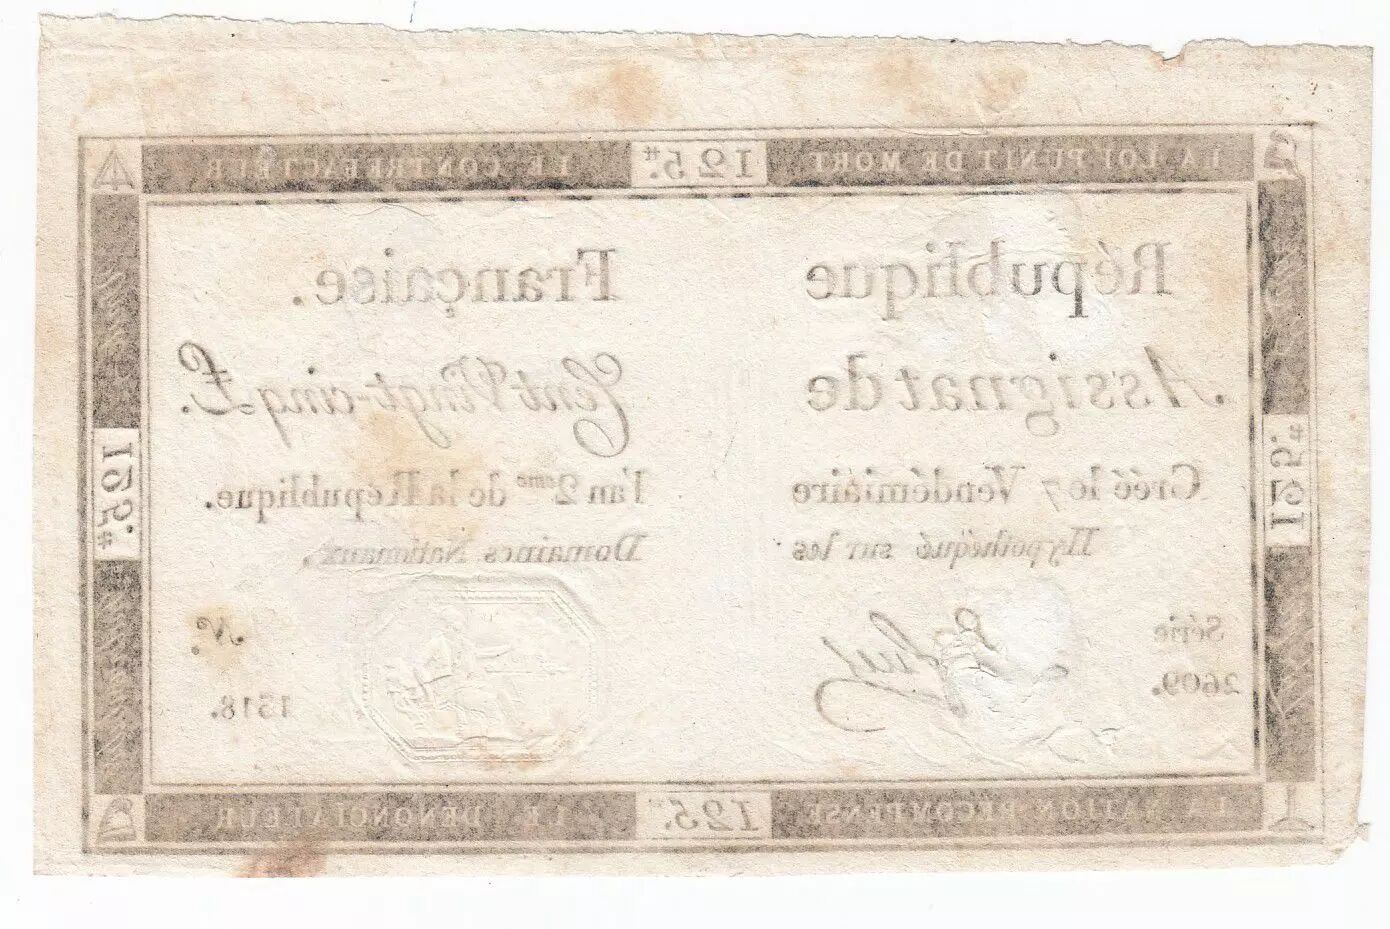 LA LOI PUNIT DE MORT 125.# LE CONTREFACTEUR
République Française.
Assignat de Cent Vingt-cinq £.
Créé le 7 Vendémiaire l'an 2eme de la République.
Hypothéqué sur les Domaines Nationaux.
Série
2609.
N.º
1518.
125.#
125.#
LA NATION RECOMPENSE 125. LE DENONCIATEUR